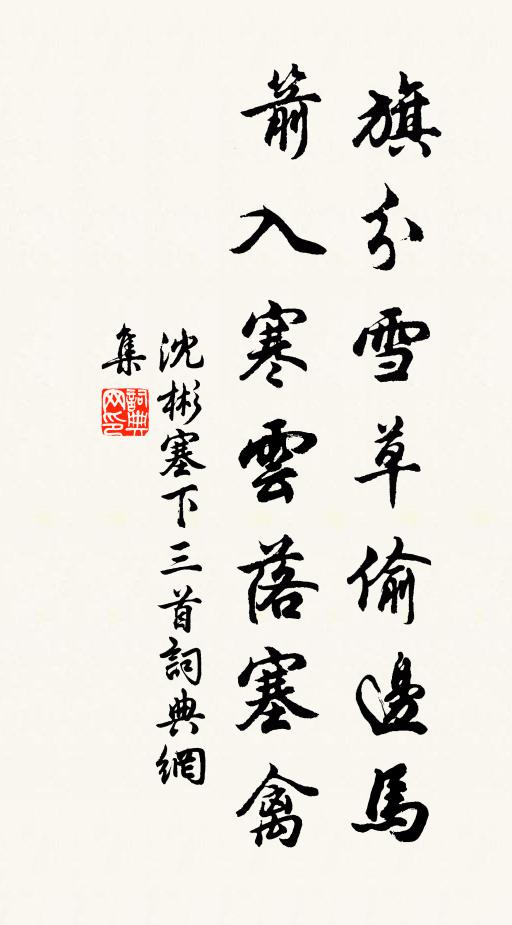 旗分雪草偷邊馬
箭入寒雲落塞禽
沈彬塞下三首詞典網
集
詞典
网印